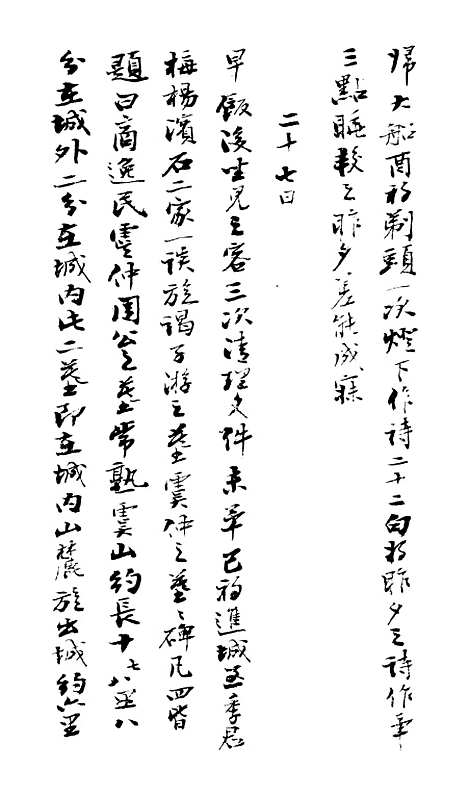 歸大船酉初剃頭一次燈下作詩二十二句將昨夕之詩作畢
三點睡較之昨夕差能成寐
二十七日
早飯後坐見之客三次清理文件未畢巳初進城至季君
梅楊濱石二家一談旋謁子游之墓虞仲之墓墓碑凡四皆
題曰商逸民虞仲周公之墓常熟虞山約長十七八里八
分在城外二分在城內此二墓即在城內山麓旋出城約六里